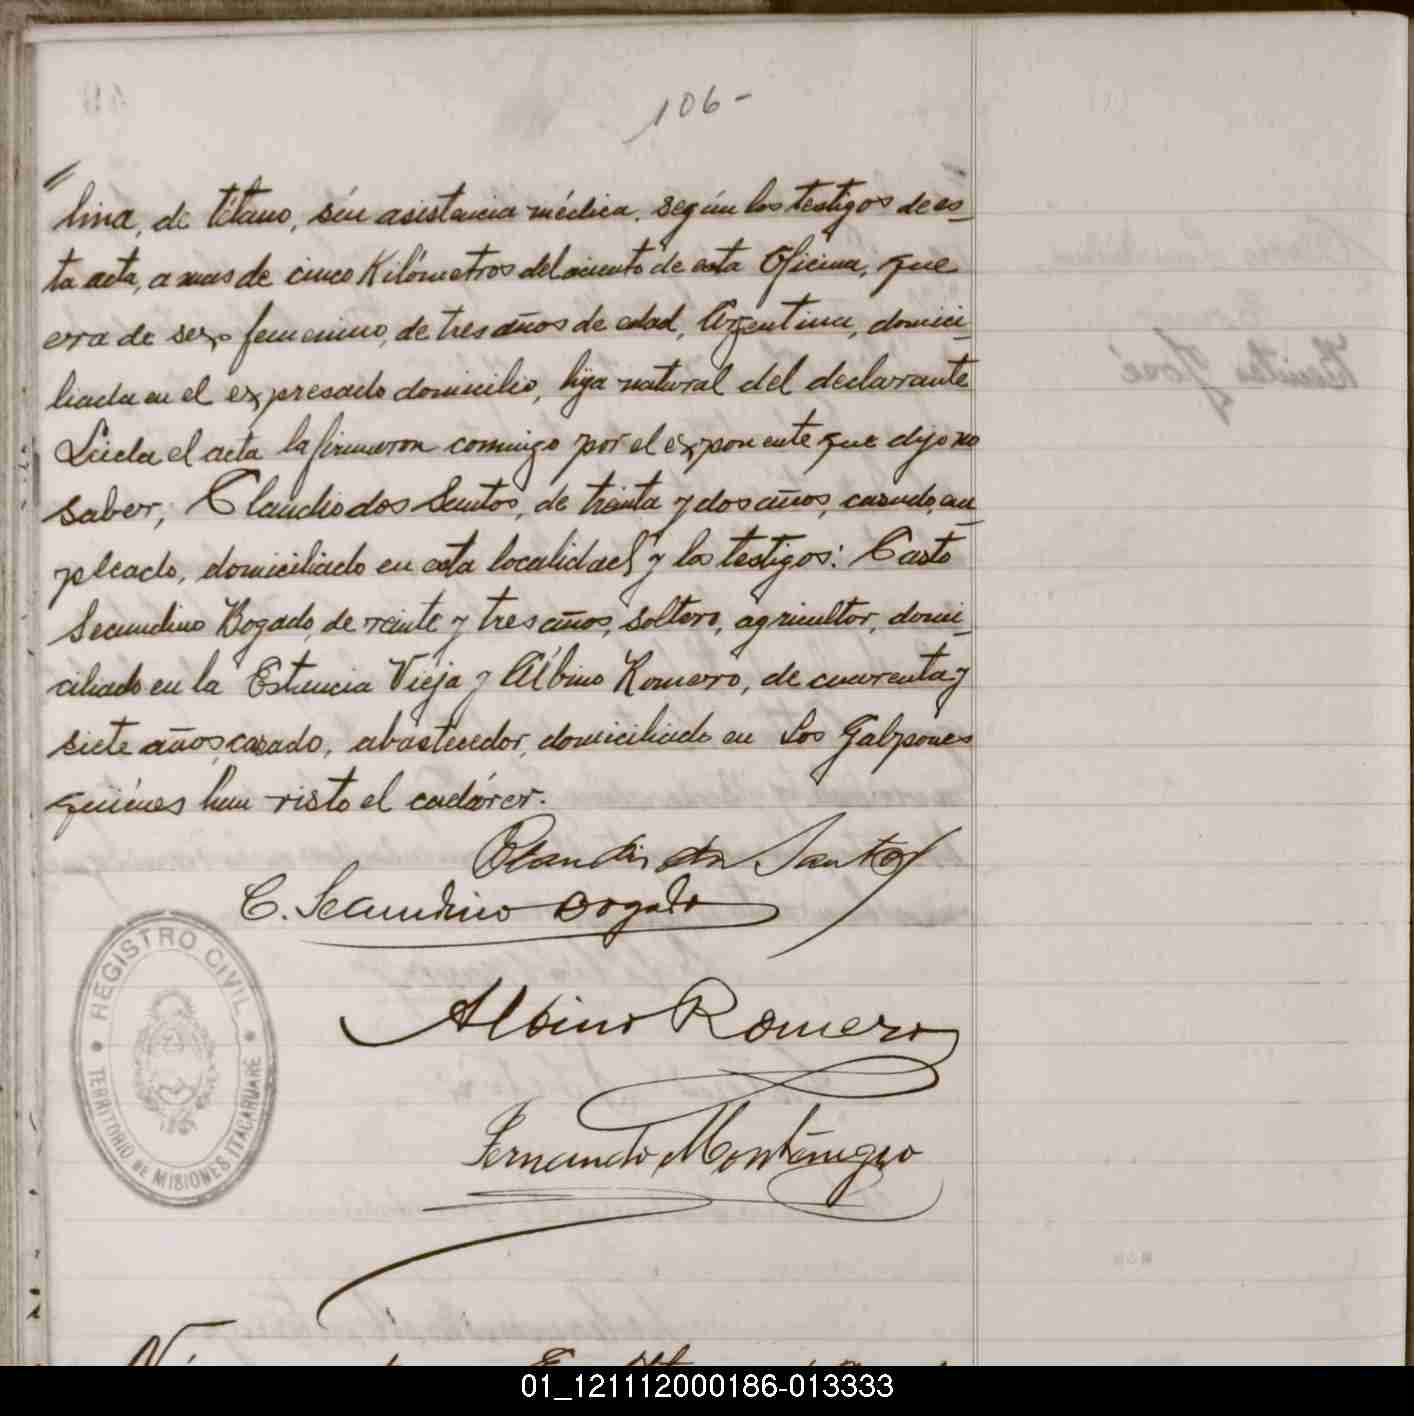 106-
"lina, de tétano, sin asistencia médica, según los testigos de es-
ta acta, a mas de cinco Kilómetros del asiento de esta Oficina, que
era de sexo femenino, de tres años de edad, Argentina, domici-
liada en el expresado domicilio, hija natural del declarante
Leida el acta la firmaron conmigo por el exponente que dijo no
saber, Claudio dos Santos, de treinta y dos años, casado, em-
pleado, domiciliado en esta localidad y los testigos: Casto
Secundino Bogado, de veinte y tres años, soltero, agricultor, domi-
ciliado en la Estancia Vieja y Albino Romero, de cuarenta y
siete años, casado, abastecedor, domiciliado en Los Galpones
quiénes han visto el cadáver.
Claudio dos Santos
C. Secundino Bogado
Albino Romero
Fernando Montenegro
REGISTRO CIVIL
TERRITORIO DE MISIONES ITACARUARÉ
01_121112000186-013333